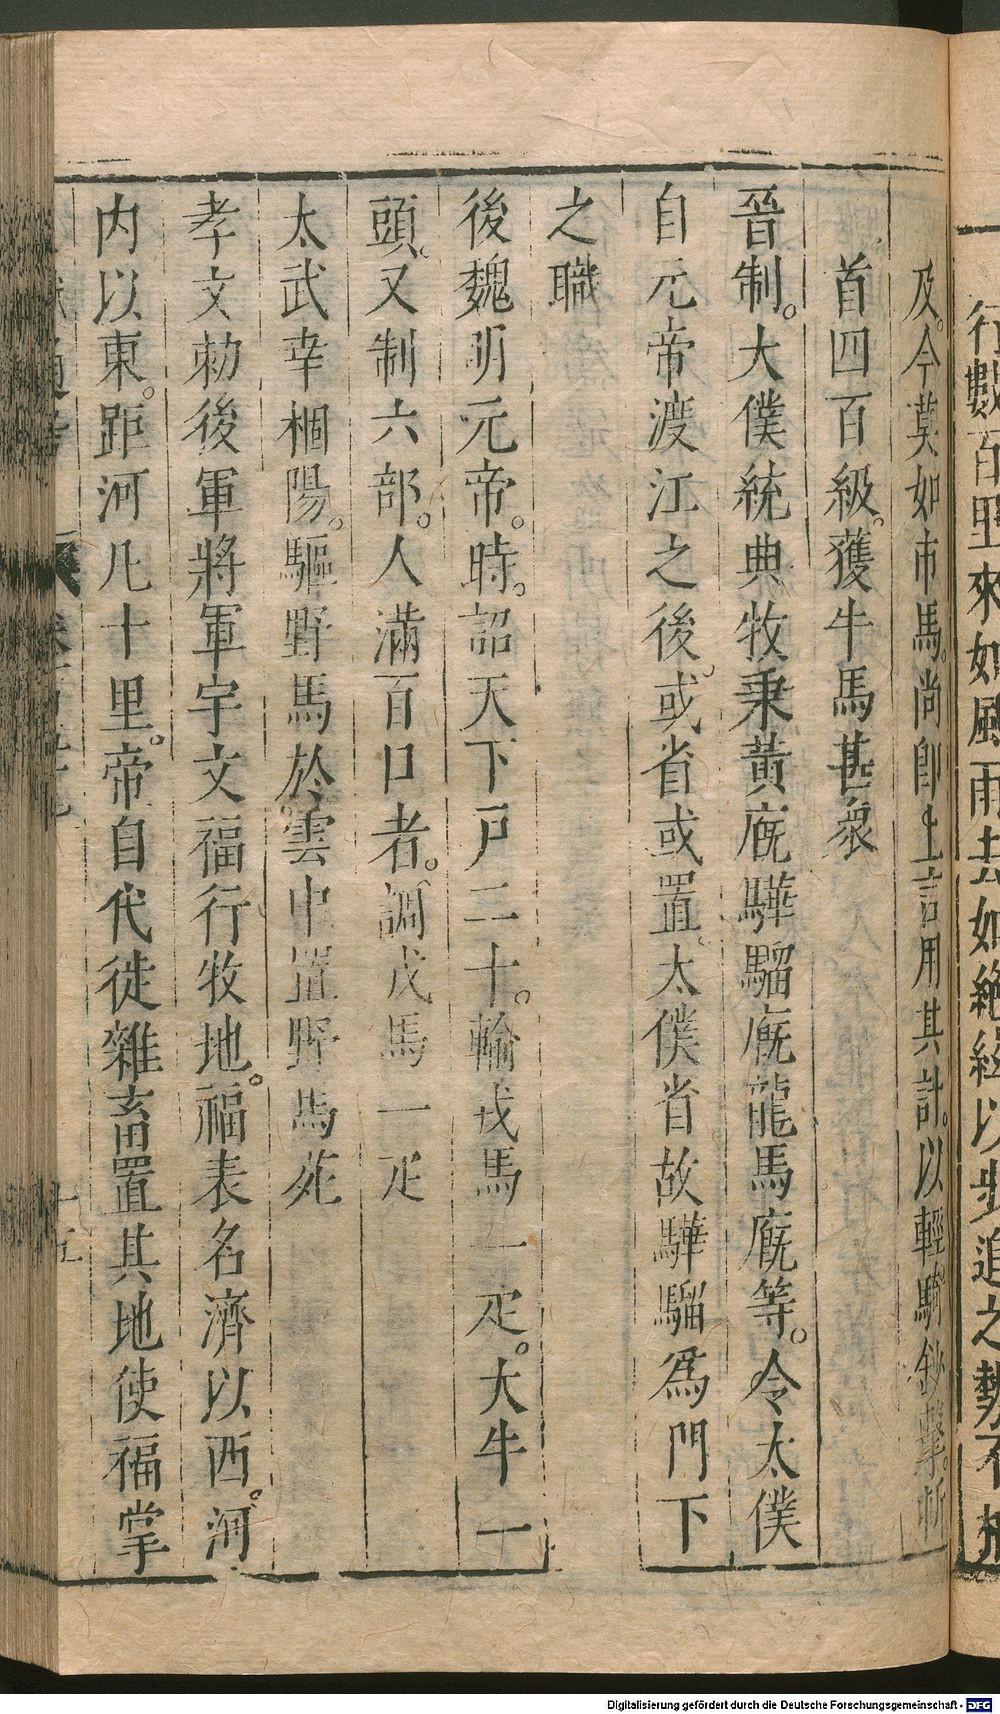 行數百里來如風雨去如絶絃以步追之勢不相
及今莫如市馬尚卽上言用其計以輕騎鈔擊斬
首四百級獲牛馬甚衆
晉制。大僕統典牧乗黃廐驊騮廐龍馬廐等。令太僕
自元帝渡江之後或省或置太僕省故驊騮爲門下
之職
後魏明元帝。時。詔天下戶二十。輸戎馬一疋。大牛一
頭。又制六部。人滿百口者。調戎馬一疋
太武幸棝陽。驅野馬於雲中置野馬苑
孝文勅後軍將軍宇文福行牧地。福表名濟以西。河
内以東。距河凡十里。帝自代徙雜畜置其地使福掌
十五
Digitalisierung gefördert durch die Deutsche Forschungsgemeinschaft - DFG